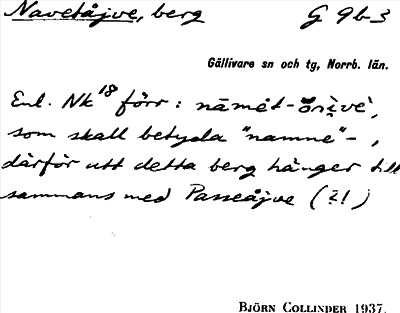 Navetåjve, berg G 9b3
Gällivare sn och tg, Norrb. län.
Enl. Nk 18 förr: nāmėt-
som skall betyda "namne"-,
därför att detta berg hänger till
sammans med Passeåjve (?!)
BJÖRN COLLINDER 1937.